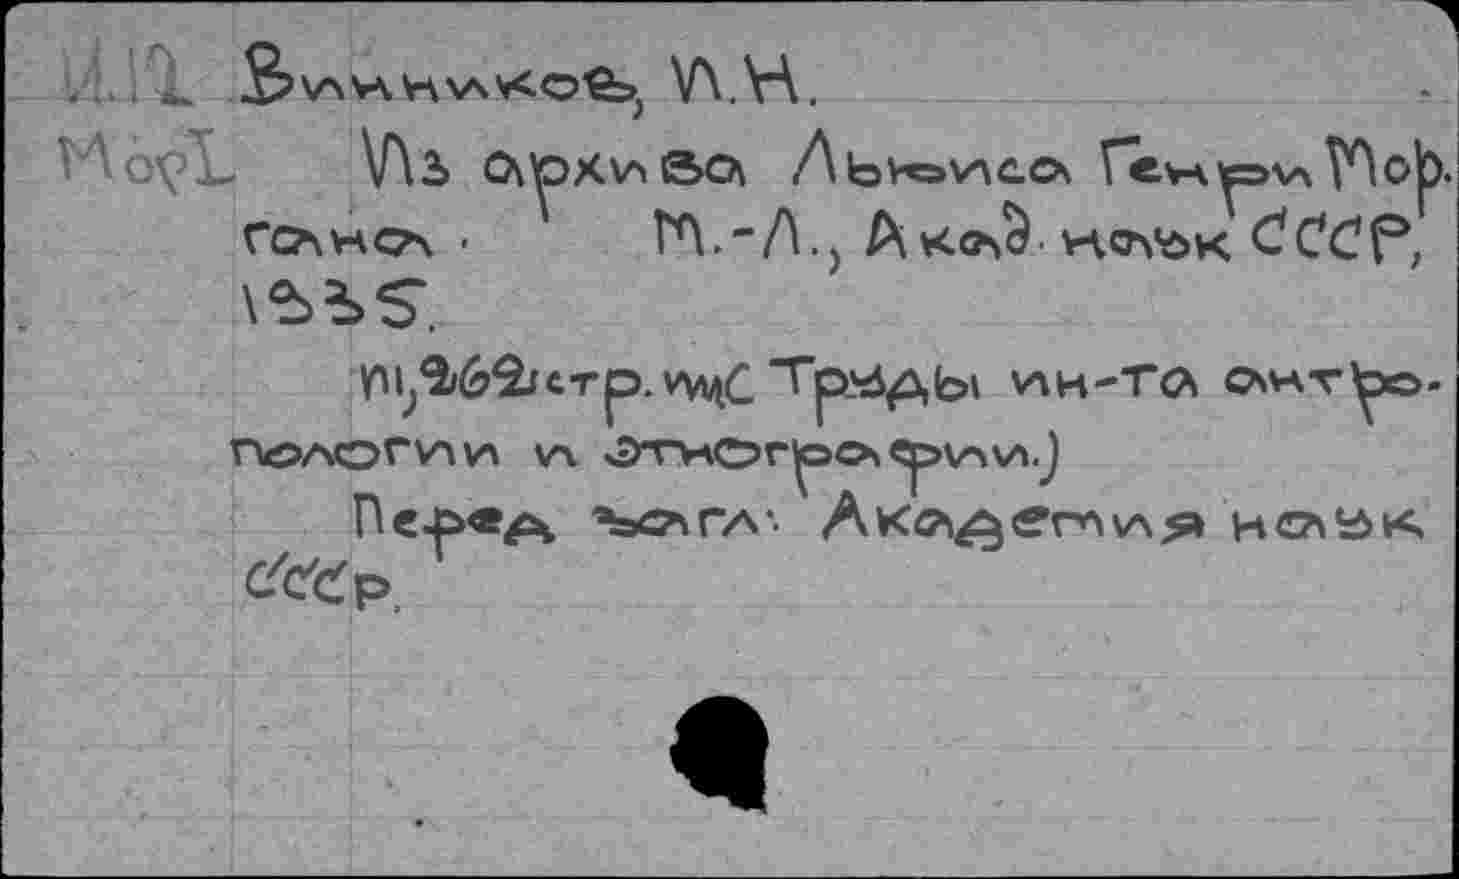 И.П. Винников, И.Н.
МорГ Из архива Льюиса Генри Мор-
гана. М.-Л., Акад. наук СССР,
1935.
III, 262 стр. илл. (Труды ин-та антро-
пологии и этнографии.)
Перед загл: Академия наук
СССР.